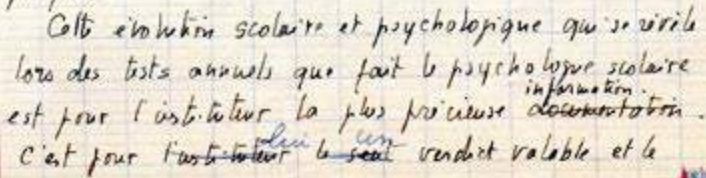 Cette évolution scolaire et psychologique qui se révèle
lors des tests annuels que fait le psychologue scolaire
est pour l'instituteur la plus précieuse documentation information.
C'est pour l'instituteur lui le seul un verdict valable et le